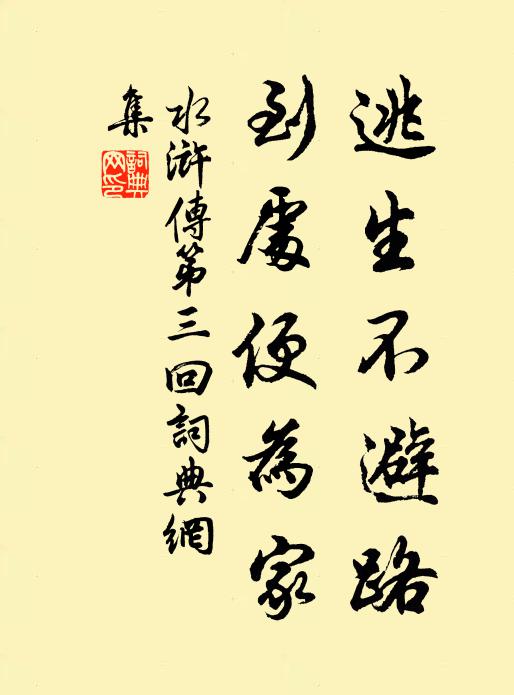 逃生不避路
到處便為家
水滸傳第三回詞典網
集
詞典網印